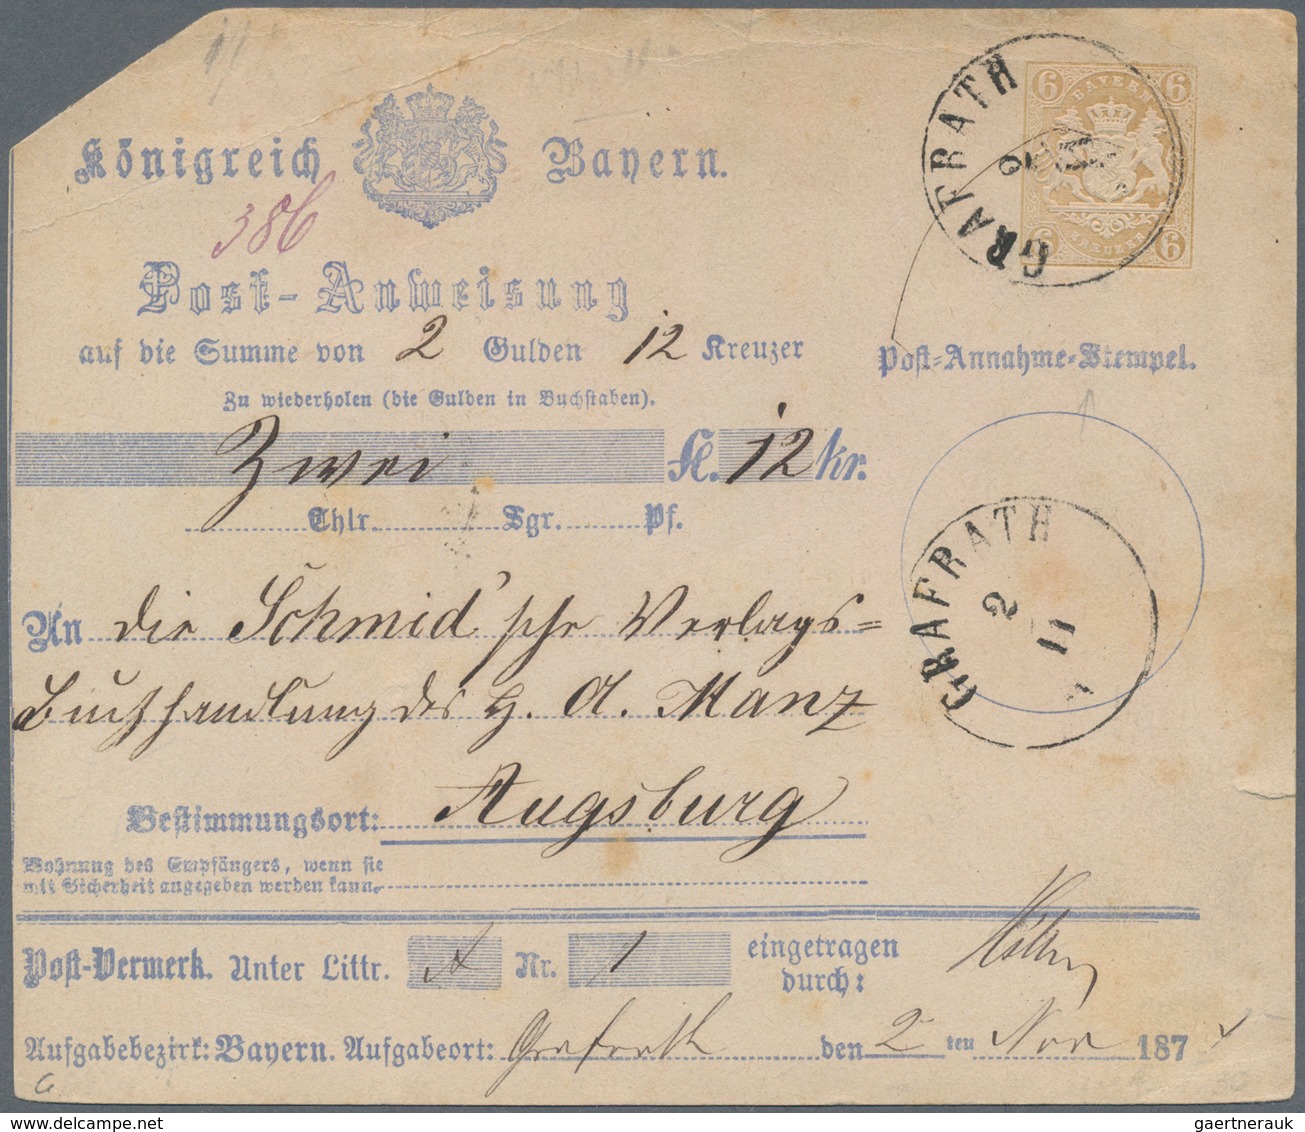 GRAFRATH
2
11
6 BAYERN 6
6 KREUZER 6
Königreich Bayern.
386
Post-Anweisung
auf die Summe von 2 Gulden 12 Kreuzer
Post-Annahme-Stempel.
Zu wiederholen (die Gulden in Buchstaben).
Zwei fl. 12 kr.
Thlr. Sgr. Pf.
GRAFRATH
2
11
An die Schmid'sche Verlags=
Buchhandlung des H. A. Manz
Augsburg
Bestimmungsort:
Wohnung des Empfängers, wenn sie
mit Sicherheit angegeben werden kann.
Post-Vermerk. Unter Littr. A Nr. 1 eingetragen
durch:
Aufgabebezirk: Bayern. Aufgabeort: Grafrath den 2 ten Nov 187
gaertnerauk